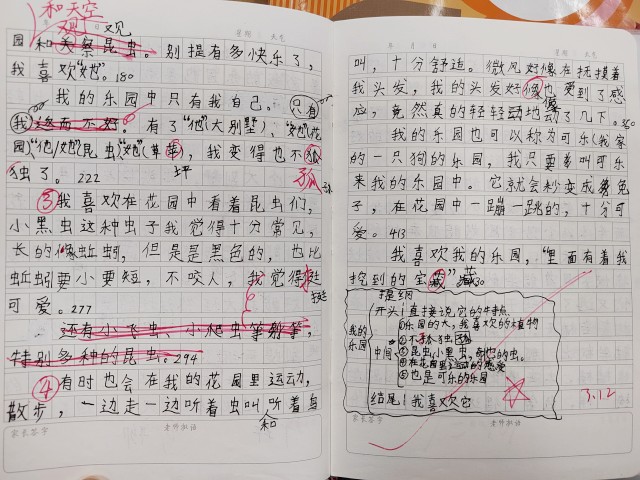 和天空
观 观
园和天祭昆虫。别提有多快乐了，
我喜欢“她”。180
我的乐园中只有我自己。只有
我终而不好。有了“他”(大别墅)、“她”(花
园)“他/她”(昆虫)“她”(草坪)，我变得也不孤
独了。222 坪 孤
③我喜欢在花园中看着昆虫们，
小黑虫这种虫子我觉得十分常见，
长的像蚯蚓，但是是黑色的，也比
蚯蚓要小要短，不咬人，我觉得挺
可爱。277 挺
还有小飞虫、小爬虫等等，
特别多种的昆虫。294
④有时也会在我的花园里运动，
散步，一边走一边听着虫叫，听着鸟
和
家长签字 老师寄语
年 月 日 星期： 天气
叫，十分舒适。微风好像在抚摸着
我头发，我的头发好像也受到了感
应，竟然真的轻轻动地动了几下。360
我的乐园也可以称为可乐(我家
的一只狗)的乐园，我只要叫可乐
来我的乐园中。它就会秒变成兔
子，在花园中一蹦一跳的，十分可
爱。413
我喜欢我的乐园，“里面有着我
挖到的宝藏”藏430
提纲
我的乐园
开头：直接说它的特点
中间：①乐园的大，我喜欢的植物
②不孤独
③昆虫小黑虫，奇怪的虫。
④在花园里运动的感爱
⑤也是可乐的乐园
结尾：我喜欢它
3.12
家长签字 老师寄语